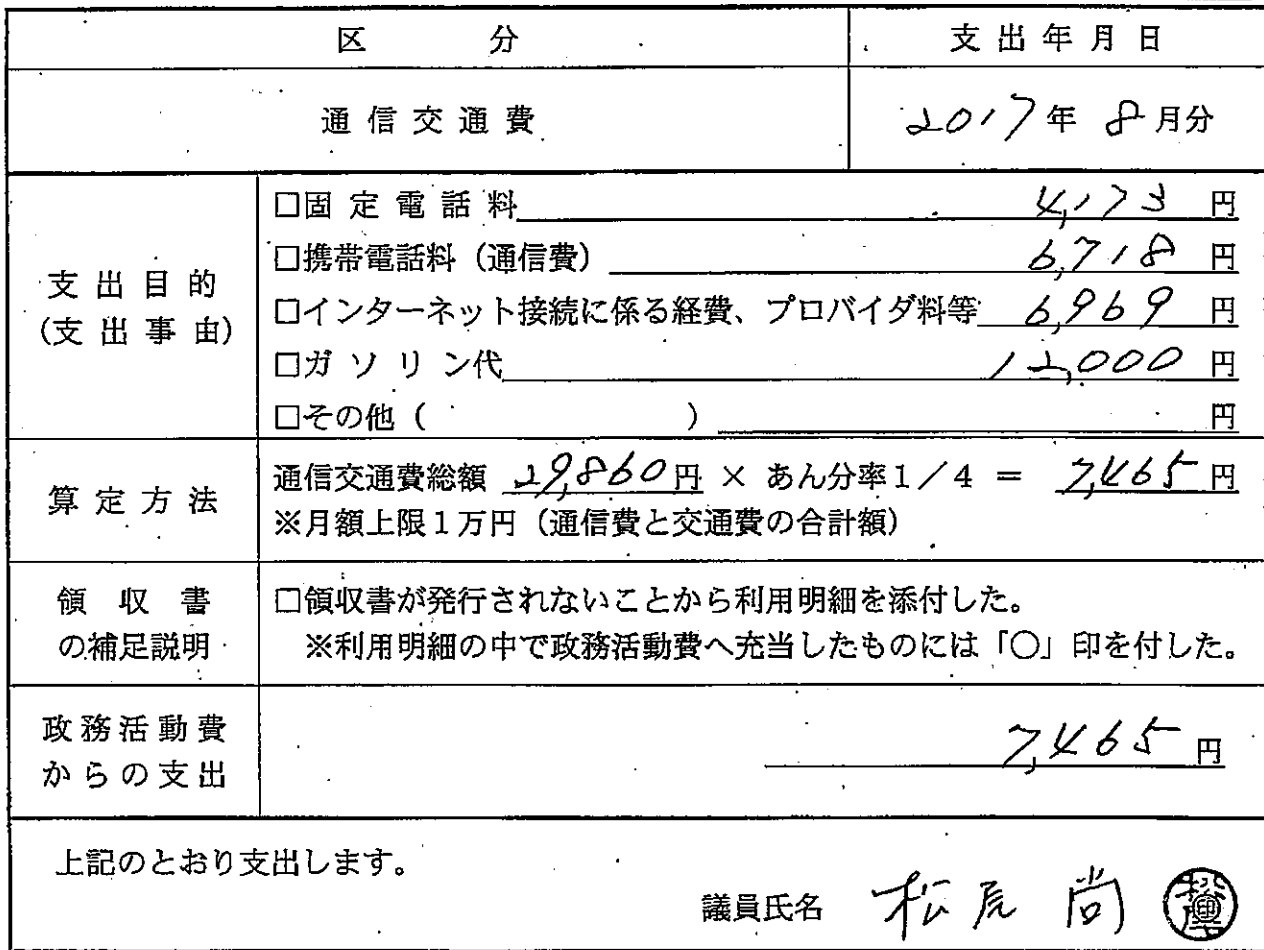 区 分 支出年月日
通信交通費 2017年 8月分
支出目的
(支出事由)
□固定電話料 4,173 円
□携帯電話料（通信費） 6,718 円
□インターネット接続に係る経費、プロバイダ料等 6,969 円
□ガソリン代 12,000 円
□その他（ ） 円
算定方法
通信交通費総額 29,860円 × あん分率1／4 ＝ 7,465 円
※月額上限1万円（通信費と交通費の合計額）
領収書
の補足説明
□領収書が発行されないことから利用明細を添付した。
※利用明細の中で政務活動費へ充当したものには「〇」印を付した。
政務活動費
からの支出
7,465 円
上記のとおり支出します。
議員氏名 松 尚